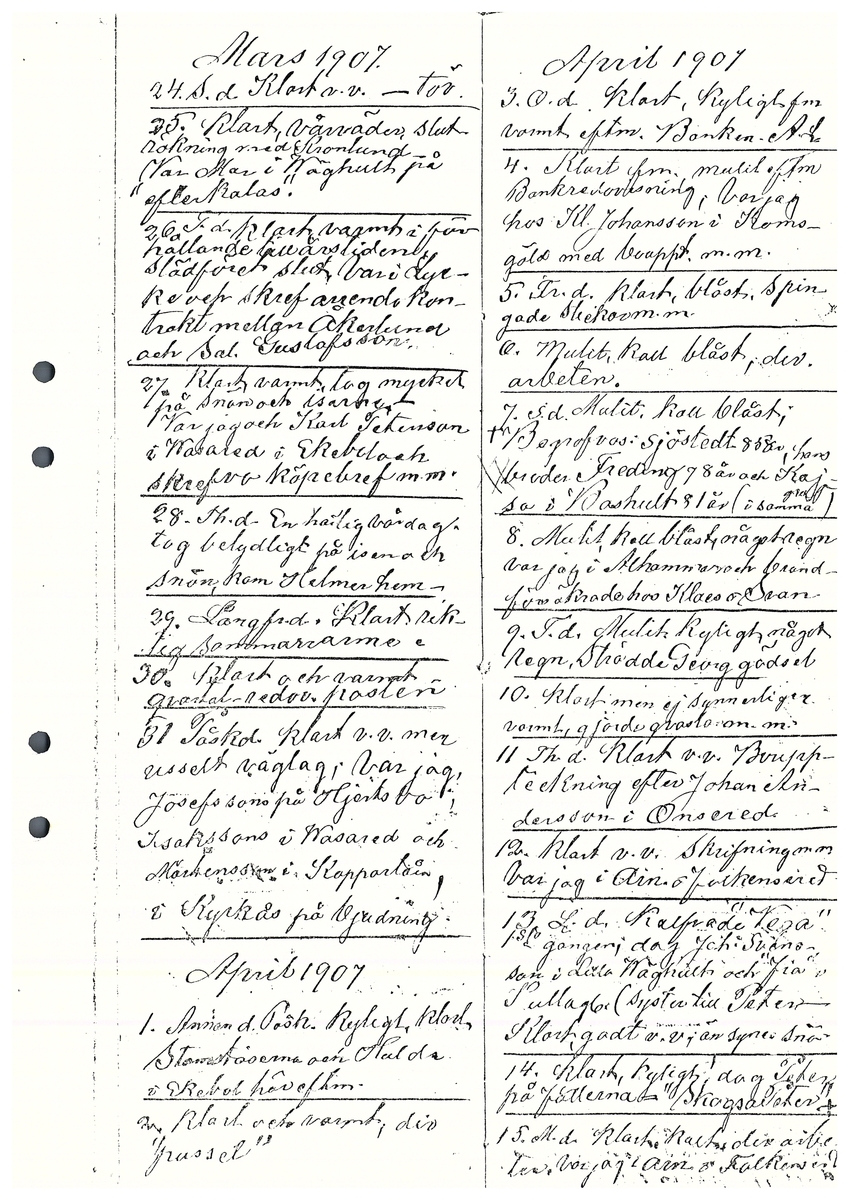 Mars 1907.
24. S. d Klart v.v. — töv.
25. Klart, vårväder, slut
rökning med Kronlund
Var Mar i Wäghult på
"efterkalas".
26. T. d. Klart, varmt i för
hållande till årstiden,
slädföret slut, var i
skref arrendekon-
trakt mellan Åkerlund
och Sal. Gustafsson.
27. Klart, varmt, tog mycket
på snön och isarne,
Var jag och Karl Petterson
i Wasared i Ekebol och
skrefvo köpebref m.m.
28. Th. d. En härlig vårdag.
tog betydligt på isen och
snön, kom Helmer hem.
29. Långfr.d. Klart, rik-
tig sommarvärme
30. Klart och varmt
redov. posten
31 Påskd. Klart v.v. men
usselt väglag; Var jag,
Josefssons på Hjertsbo,
Isakssons i Wasared och
Mårtensson i Kopparlån,
i Kyrkås på bjudning.
April 1907
1. Annan d. Påsk. Kyligt, klart
och Hulda
i Ekebol här eftm.
2. Klart och varmt, div
"pussel"
April 1907
3. O. d. Klart, kyligt fm
varmt eftm. Banken.
4. Klart fm. mulit eftm
Bankredovisning, Var jag
hos Kl. Johansson i Roms-
göld med bouppt. m.m.
5. Fr. d. Klart, blåst, spin-
gade m.m
6. Mulit, kall blåst, div.
arbeten.
7. S.d. Mulit, kall blåst;
Begrofvos: Sjöstedt 85 år, hans
broder Freding 78 år och Kaj-
sa i Boshult 81 år (i samma graf)
8. Mulit, kall blåst, något regn
var jag i Alhammar och brand-
försäkrade hos Klaes o Svan
9. T. d. Mulit, kyligt, något
regn, Strödde Georg gödsel
10. Klart men ej synnerligen
varmt, gjorde m.m.
11 Th. d. Klart v.v. Boupp-
teckning efter Johan An-
dersson i Önsered.
12. Klart v.v. Skrifning m m
Var jag i Ain. o Falkensered
13 L. d. Kalfvade "Vega"
1sta gången; dog Joh. Svens-
son i Lilla Wäghult och "Fia" i
(syster till Peter
Klart, godt v.v; än synes snö
14. Klart, kyligt, dog Peter
på "Skogsa Peter" +
15. M. d. Klart, kallt, div arbe
ten. Var jag i Ain. o Falkensered